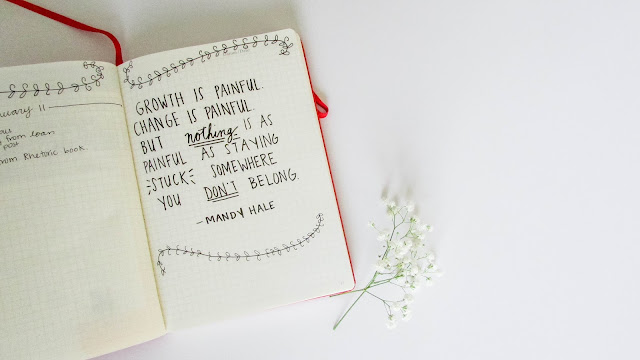 uary 11
from loan
post
om Rhetoric book.
GROWTH IS PAINFUL.
CHANGE IS PAINFUL.
BUT nothing IS AS
PAINFUL AS STAYING
STUCK SOMEWHERE
YOU DON'T BELONG.
-MANDY HALE